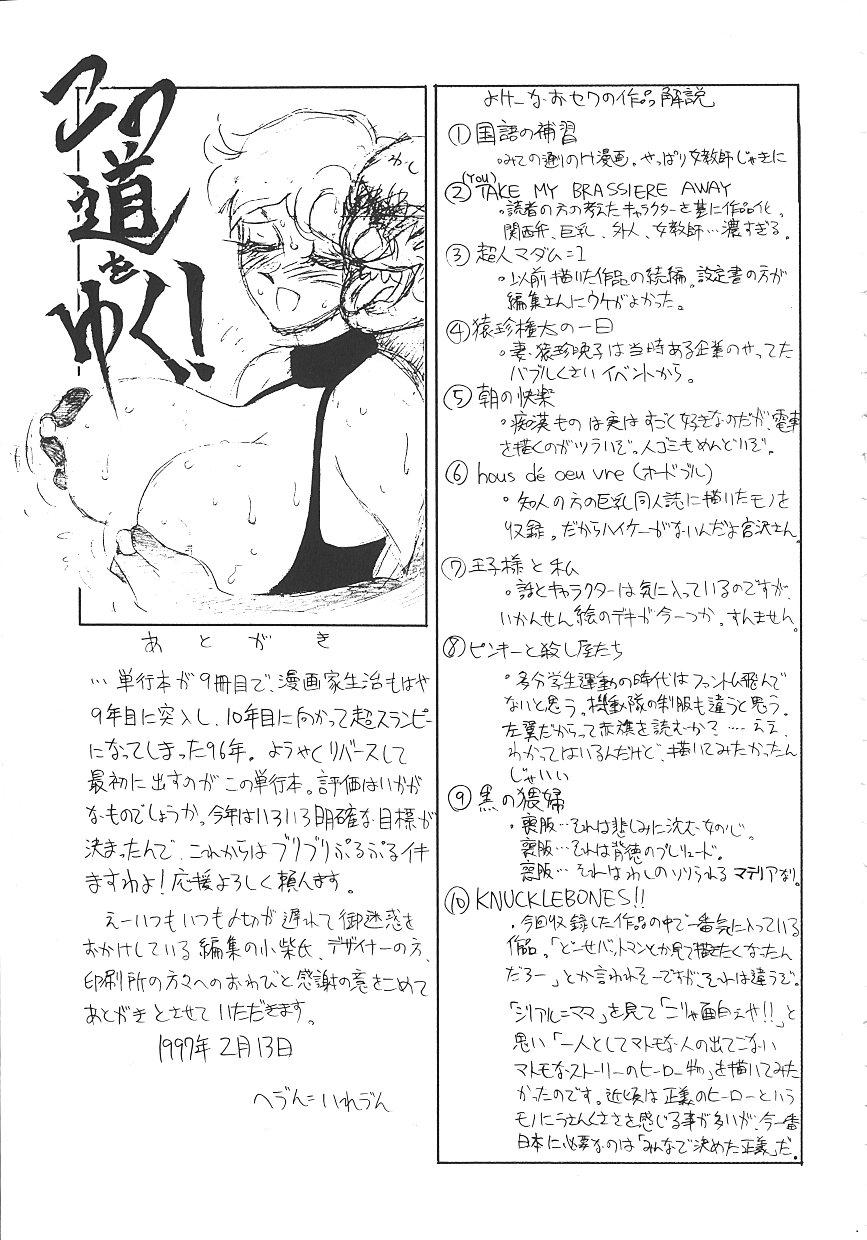 この
道
を
ゆく!
あとがき
…単行本が9冊目で、漫画家生活もはや
9年目に突入し、10年目に向かって超スランピー
になってしまった96年。ようやくリバースして
最初に出すのがこの単行本。評価はいかが
なものでしょうか。今年はいろいろ明確な目標が
決まったんで、これからはブリブリぷるぷるイキ
ますわよ!応援よろしく頼んます。
えーいつもいつも〆切が遅れて御迷惑を
おかけしている編集の小柴氏、デザイナーの方、
印刷所の方々へのおわびと感謝の意をこめて
あとがきとさせていただきます。
1997年2月13日
へづん=いれづん
よけーなおセワの作品解説
①国語の補習
・みての通りのH漫画。やっぱり女教師じゃきに
②(You)TAKE MY BRASSIERE AWAY
・読者の方の考えたキャラクターを基に作品化。
関西弁、巨乳、外人、女教師…濃すぎる。
③超人マダム=1
・以前描いた作品の続編。設定書の方が
編集さんにウケがよかった。
④猿珍権太の一日
・妻・猿珍映子は当時ある企業のやってた
バブルくさいイベントから。
⑤朝の快楽
・痴漢ものは実はすごく好きなのだが、電車
を描くのがツライぞ。人ゴミもめんどいぞ。
⑥hous de oeu vre(オードブル)
・知人の方の巨乳同人誌に描いたモノを
収録。だからハイケーがないんだよ宮沢さん。
⑦王子様と私
・話とキャラクターは気に入っているのですが、
いかんせん絵のデキが今一つか。すんません。
⑧ピンキーと殺し屋たち
・多分学生運動の時代はファントム飛んで
ないと思う。機動隊の制服も違うと思う。
左翼だからって赤旗を読むか?…ええ、
わかってはいるんだけど、描いてみたかったん
じゃいい
⑨黒の猥婦
・喪服…それは悲しみに沈む女の心。
喪服…それは背徳のプレリュード。
喪服…それはわしのソソられるマテリアなり。
⑩KNUCKLEBONES!!
・今回収録した作品の中で一番気に入っている
作品。「どーせバットマンとか見て描きたくなったん
だろー」とか言われそーですが、それは違うぞ。
「シリアル=ママ」を見て「こりゃ面白えや!!」と
思い「一人としてマトモな人の出てこない
マトモなストーリーのヒーロー物」を描いてみた
かったのです。近頃は正義のヒーローという
モノにうさんくささを感じる事が多いが、今一番
日本に必要なのは「みんなで決めた正義」だ。